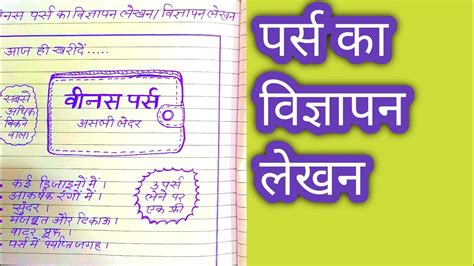 वीनस पर्स का विज्ञापन लेखन। विज्ञापन लेखन
आज ही खरीदें .....
सबसे
अधिक
बिकने
वाला
वीनस पर्स
असली लेदर
कई डिजाइनों में।
आकर्षक रंगों में।
सुंदर।
मजबूत और टिकाऊ।
वाटर प्रूफ।
पर्स में पर्याप्त जगह।
3 पर्स
लेने पर
एक फ्री
पर्स का
विज्ञापन
लेखन